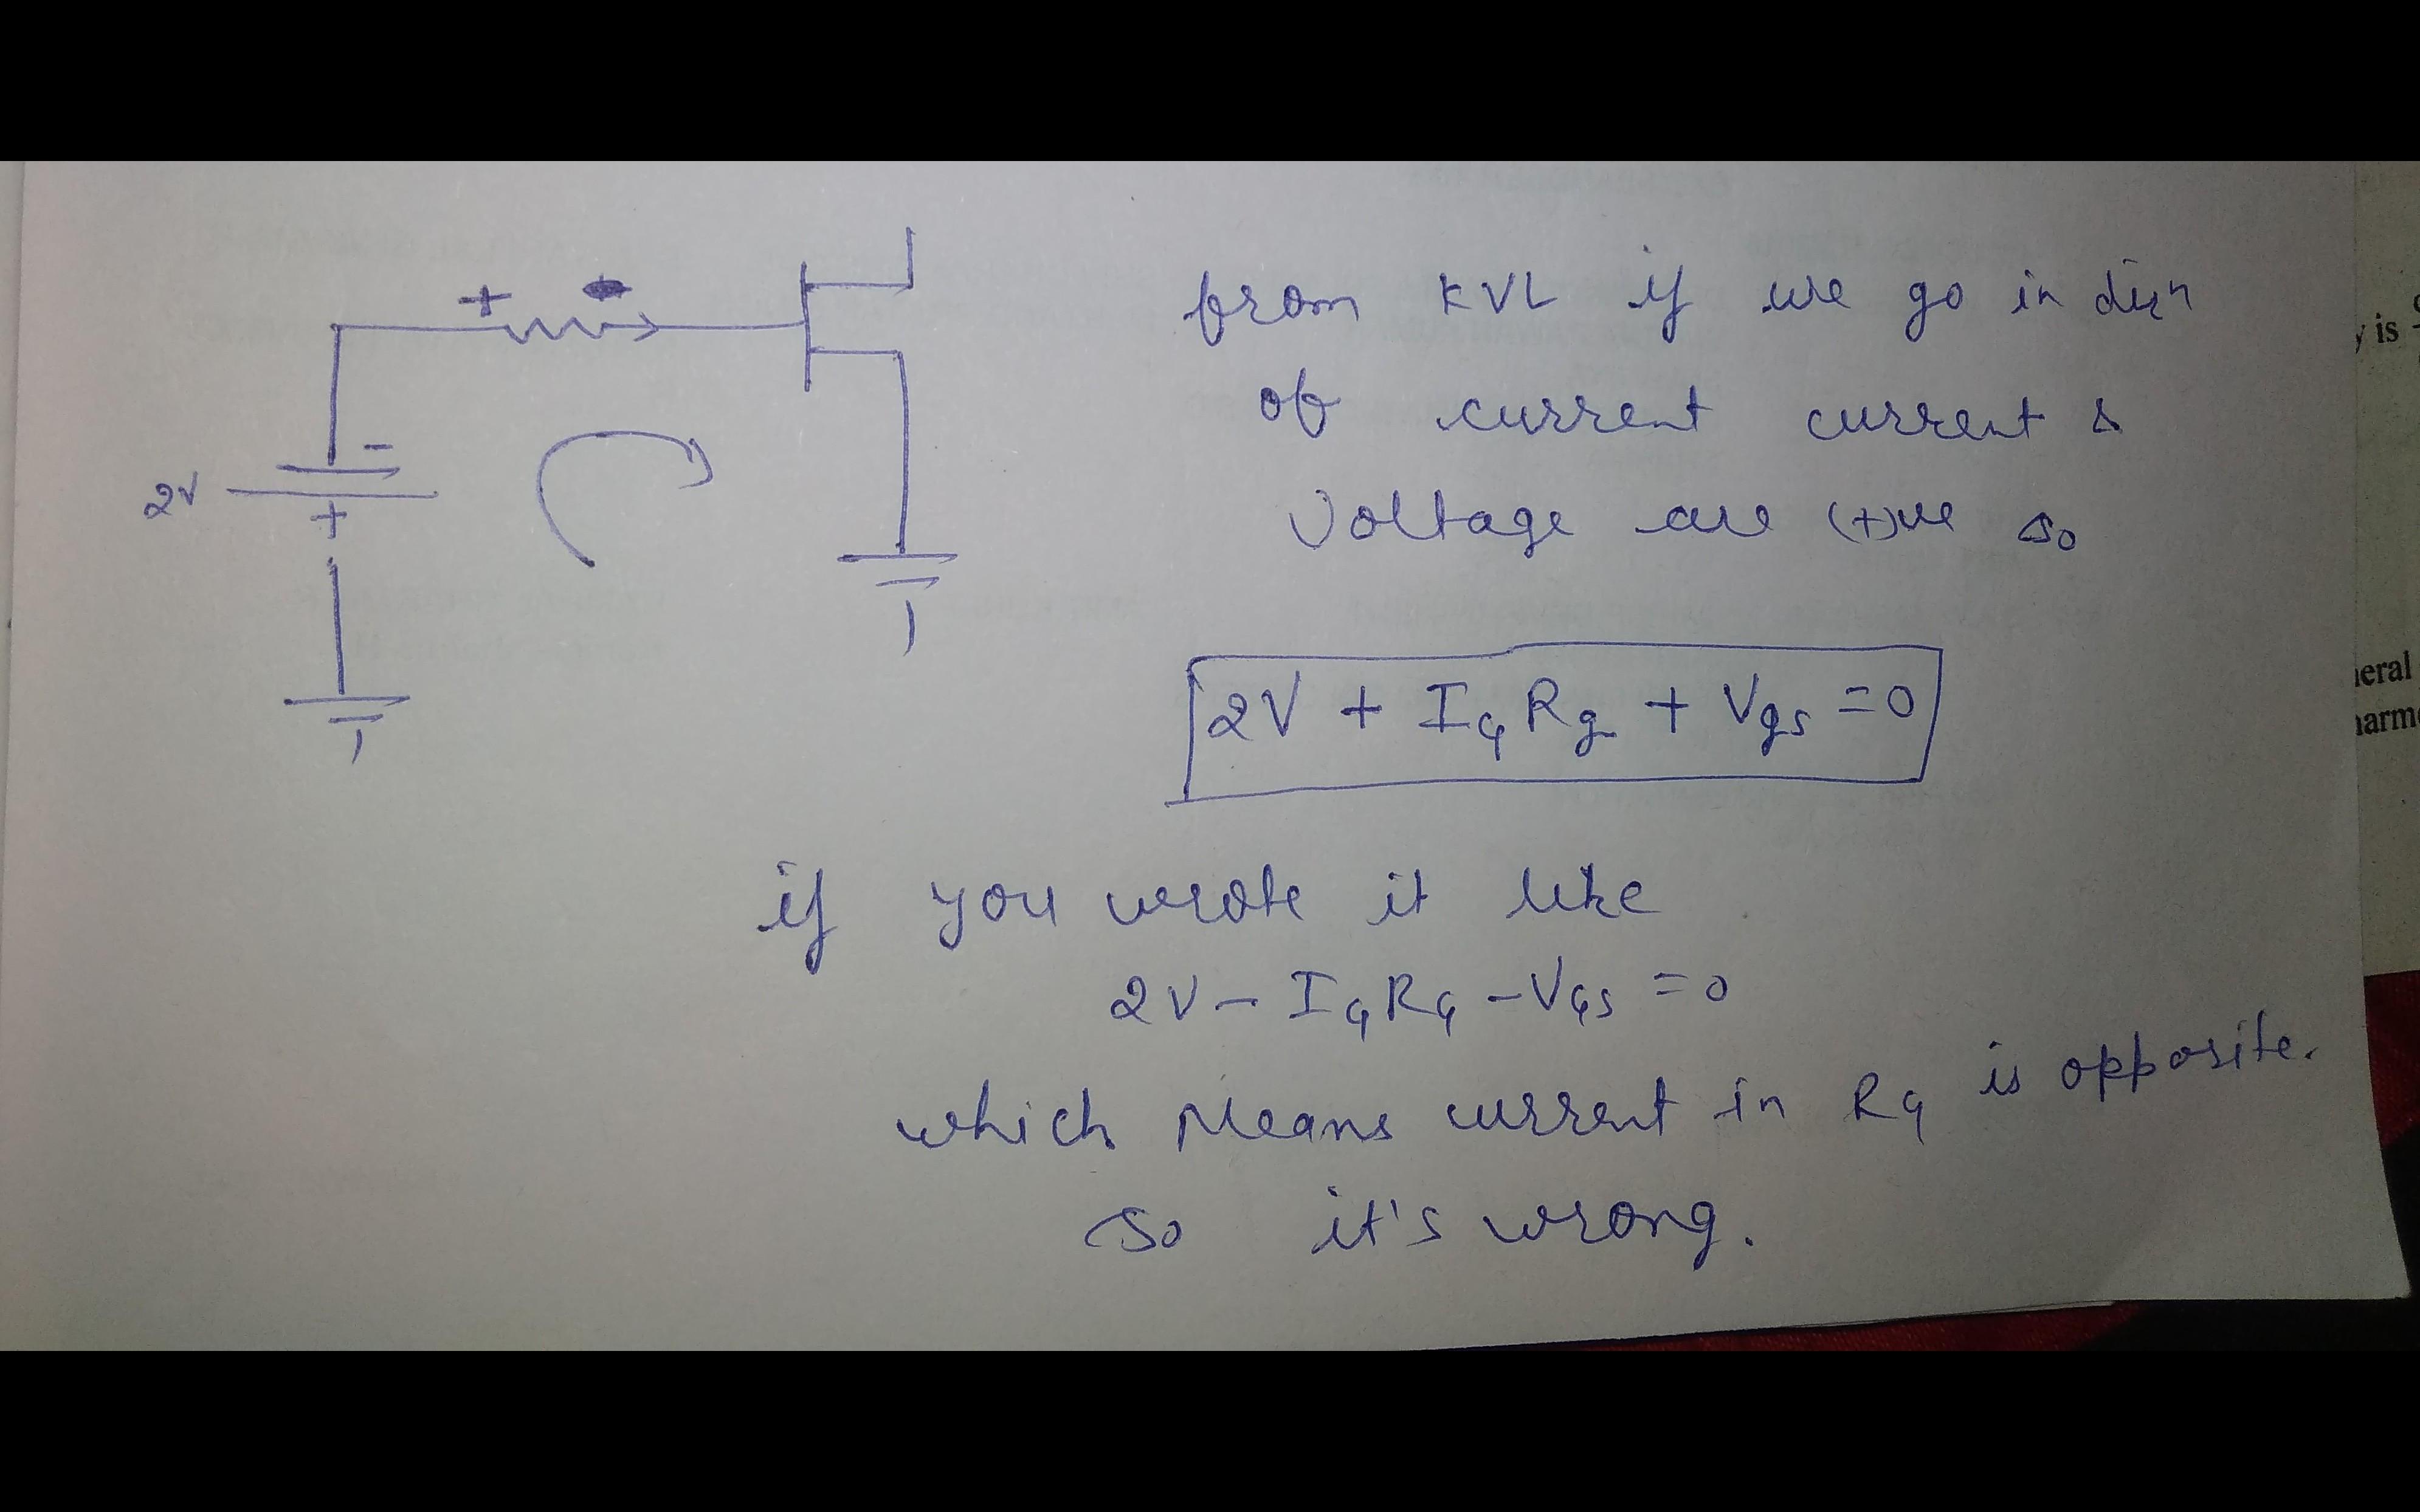 +
-
2V
+
from KVL if we go in dirn
of current current &
Voltage are (+)ve so
2V + IG Rg + Vgs = 0
if you wrote it like
2V - IG RG - VGS = 0
which Means current in RG is opposite.
so it's wrong.
y is
neral
harm